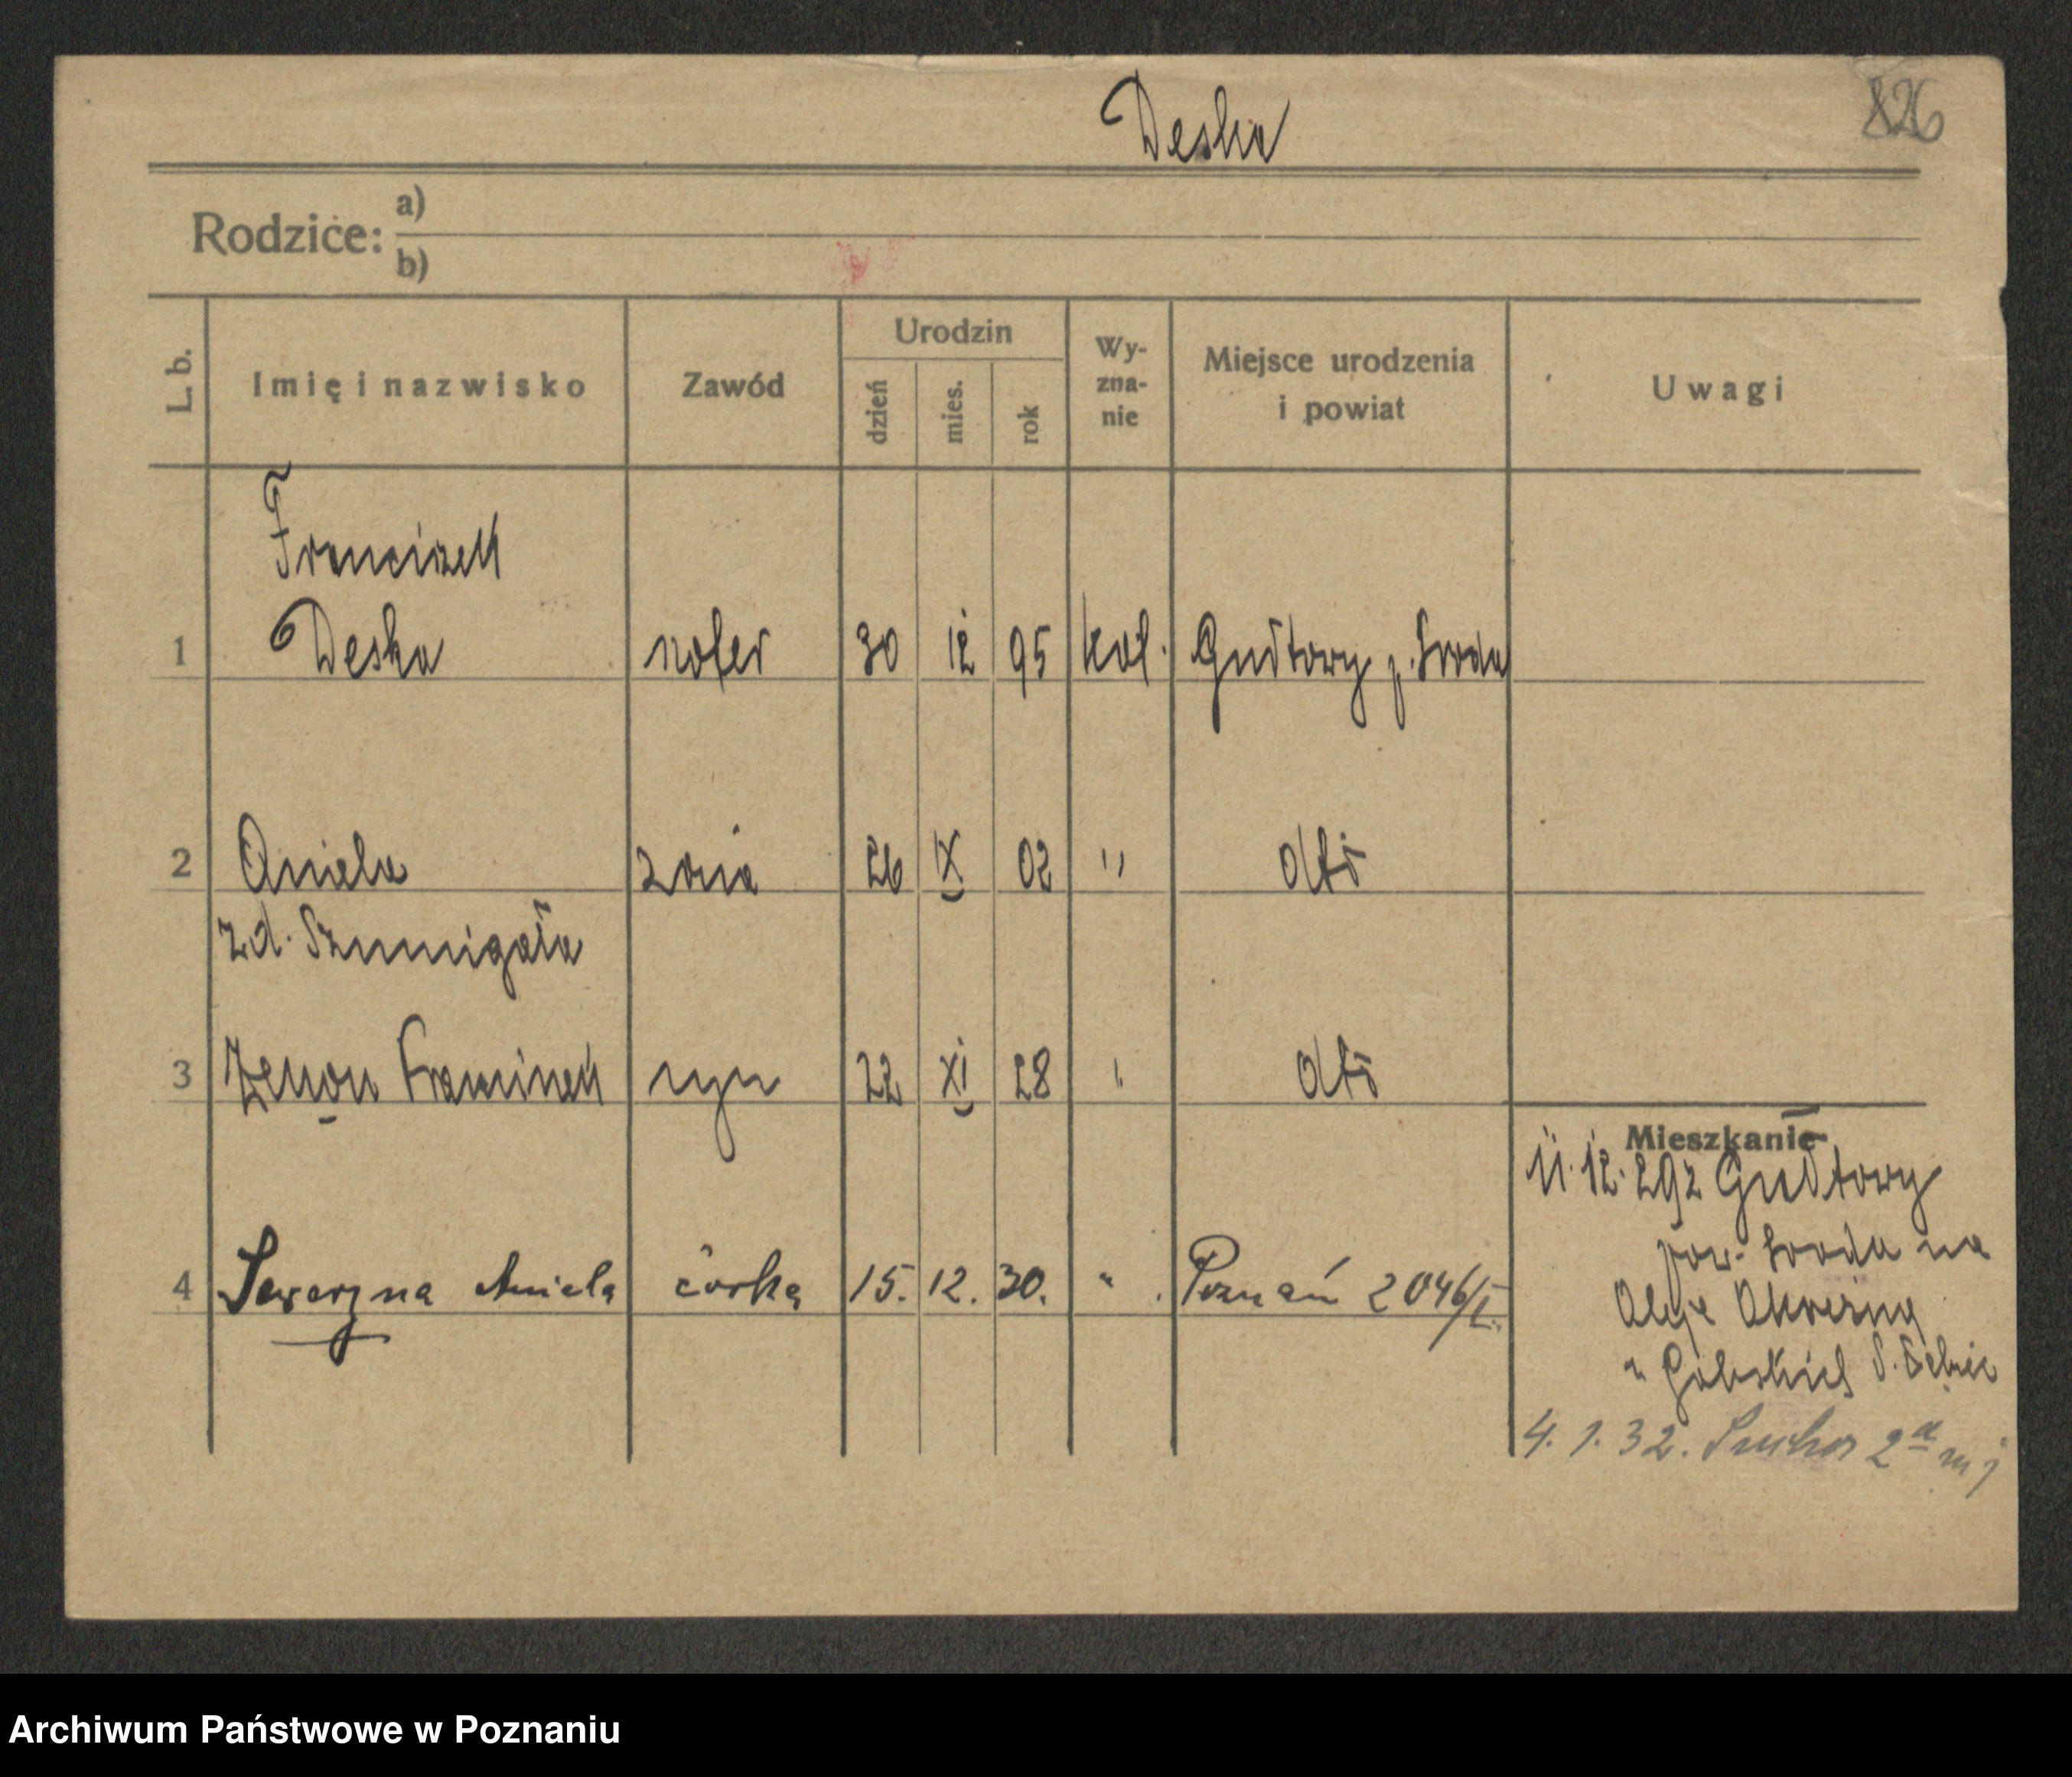 Deska
826
Rodzice: a)
b)
L. b. Imię i nazwisko Zawód Urodzin dzień mies. rok Wy-zna-nie Miejsce urodzenia i powiat Uwagi
Franciszek
1 Deska szofer 30 12 95 kat. Gułtowy p. Środa
2 Aniela żona 26 IX 02 " dto
zd. Szumigała
3 Zenon Franciszek syn 22 XI 28 " dto
Mieszkanie
11. 12. 29 z Gułtowy
pow. Środa na
4 Seweryna Aniela córka 15. 12. 30. " Poznań 2046/I.
4. 1. 32.
Archiwum Państwowe w Poznaniu